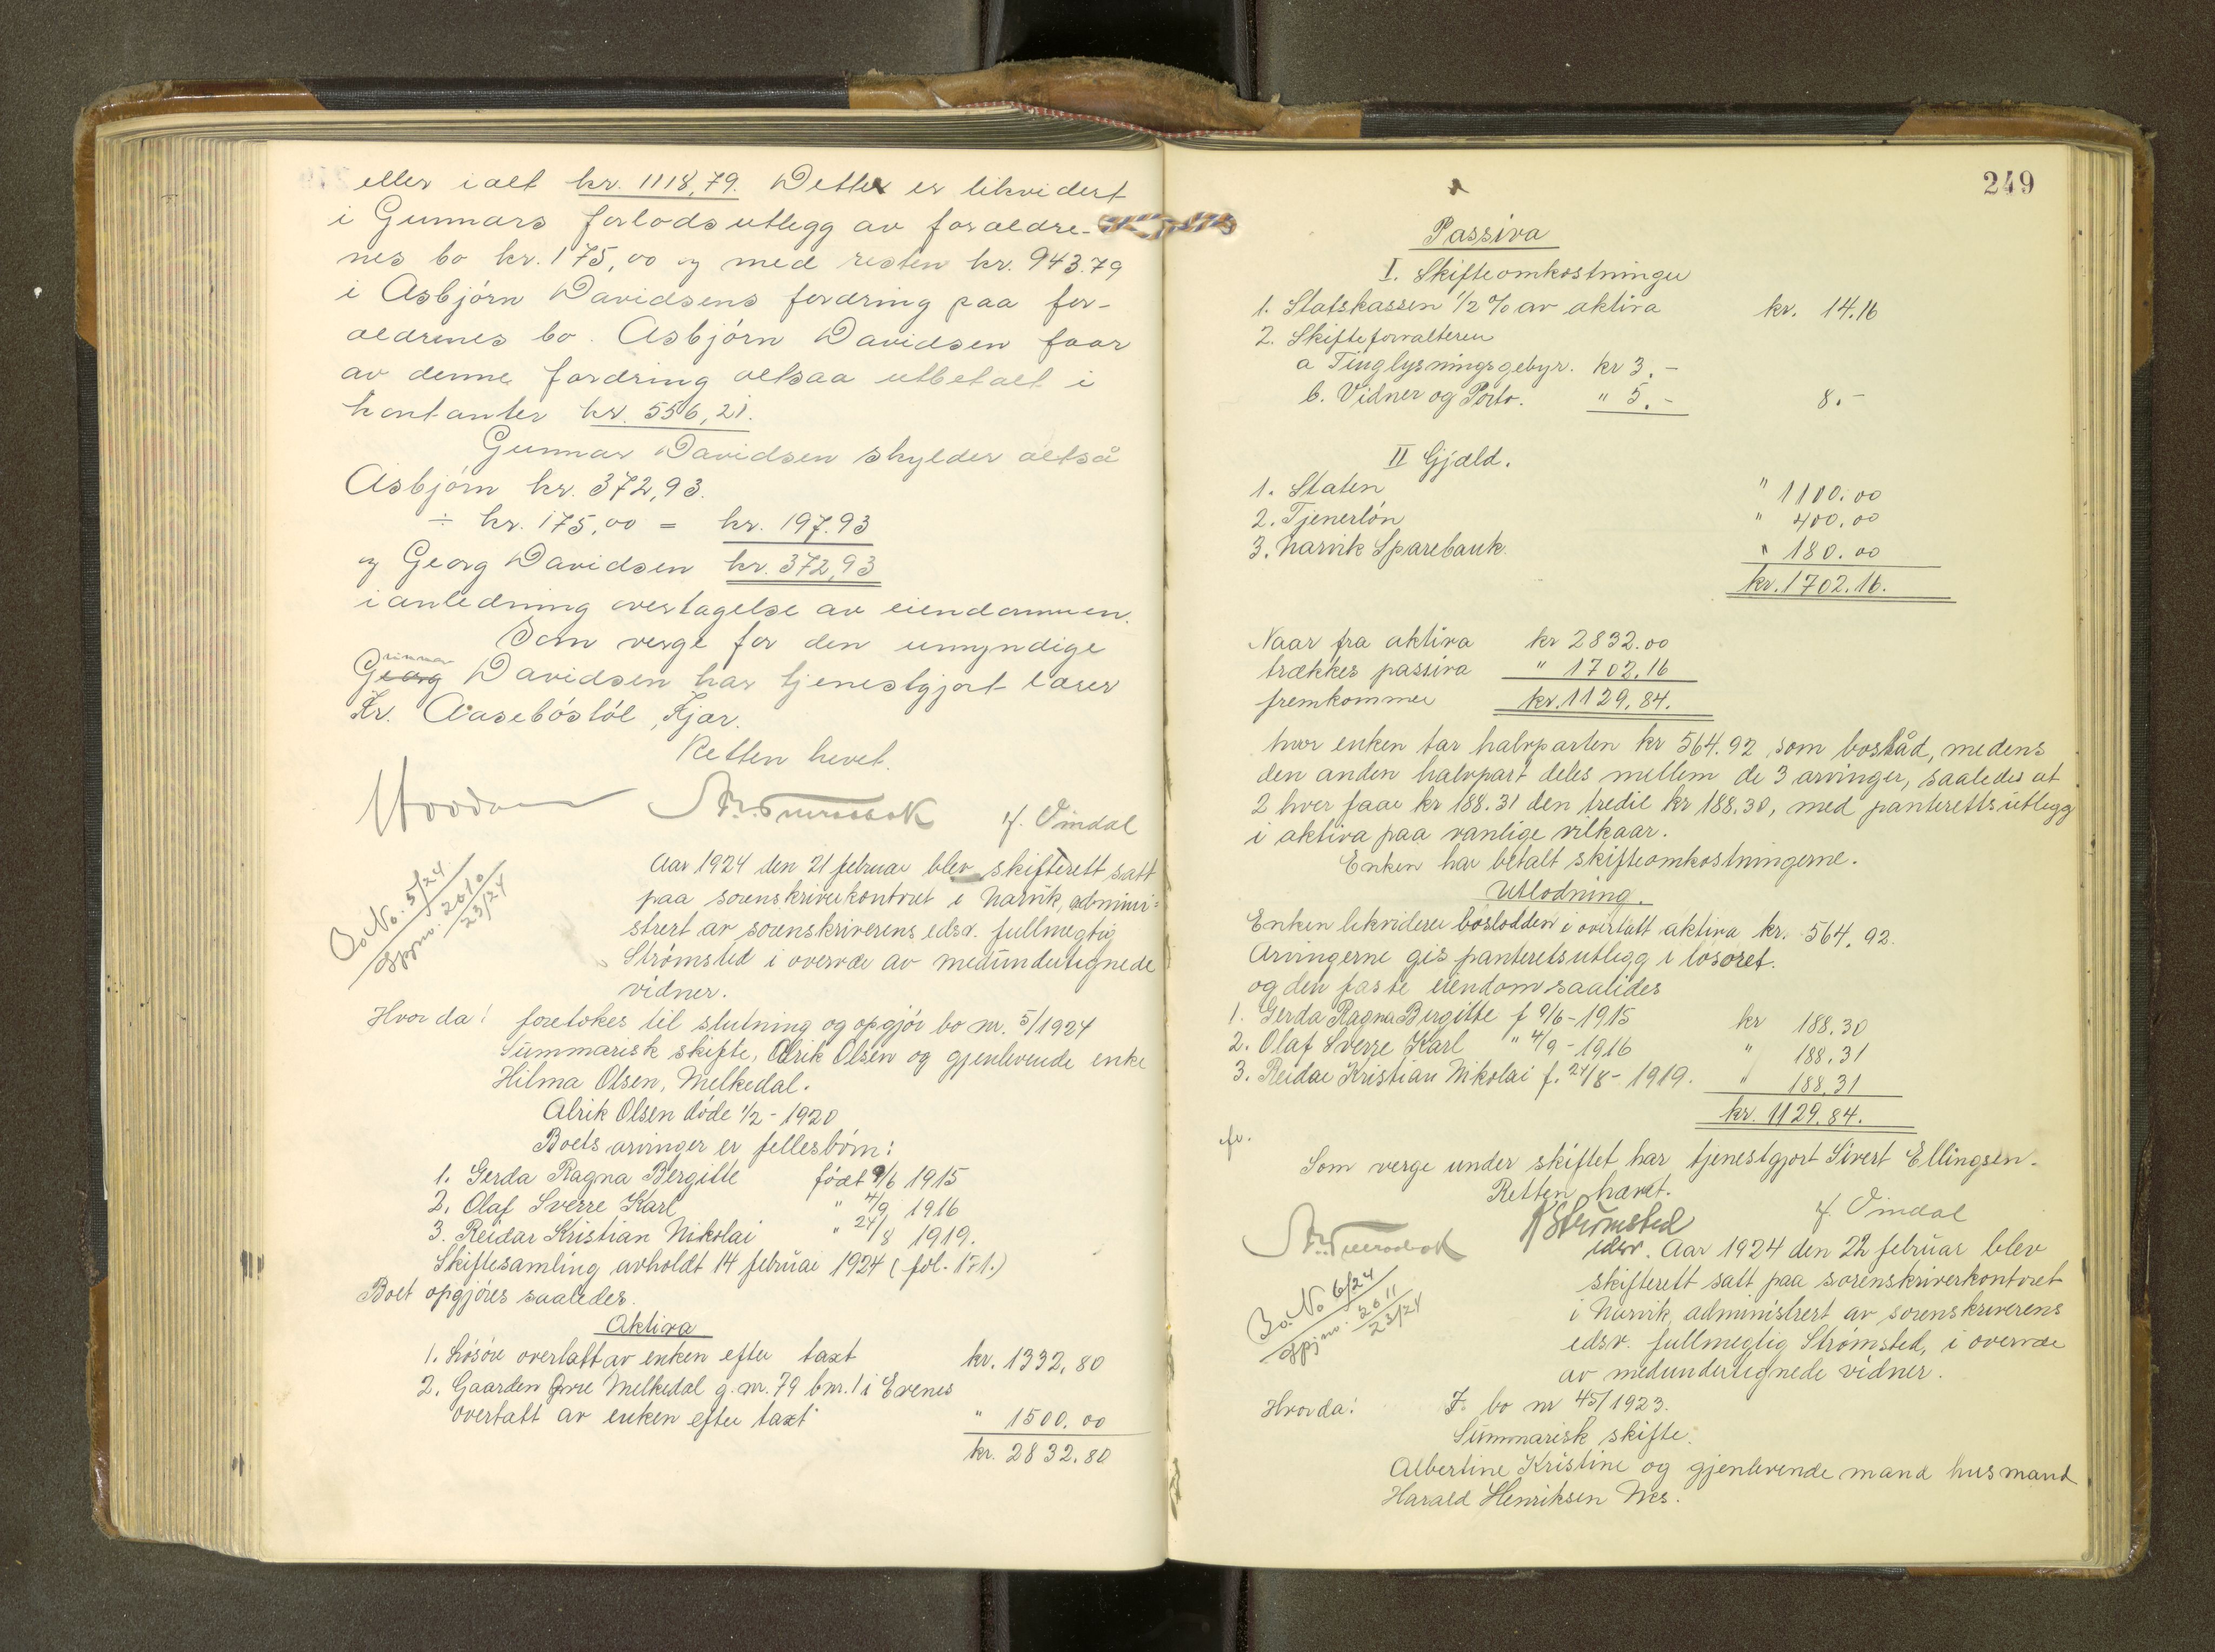 eller ialt kr. 1118,79. Dette er likvidert
i Gunnars forlods utlegg av foraeldre-
nes bo kr. 175,00 og med resten kr. 943.79
i Asbjörn Davidsens fordring paa for-
aeldrenes bo. Asbjörn Davidsen faar
av denne fordring altsaa utbetalt i
kontanter kr. 556,21.
Gunnar Davidsen skylder altså
Asbjörn kr. 372,93.
÷ kr. 175,00 = kr. 197.93
og Georg Davidsen kr. 372,93
i anledning overtagelse av eiendommen.
Som verge for den umyndige
Gunnar
Georg Davidsen har tjenestgjort lærer
Kr. Aaseböstöl, Kjær.
Retten hevet.
f. Vindal
Bo No. 5/24
Spjnr. 2010
23/24
Aar 1924 den 21 februar blev skifterett satt
paa sorenskriverkontoret i Narvik, admini=
strert av sorenskriverens edsv. fullmegtig
Strømsted i overvær av medundertegnede
vidner.
Hvor da: foretokes til slutning og opgjör bo nr. 5/1924
Summarisk skifte, Alrik Olsen og gjenlevende enke
Hilma Olsen, Melkedal.
Alrik Olsen döde 1/2 - 1920
Boets arvinger er fellesbörn:
1. Gerda Ragna Bergitte födt 9/6 1915
2. Olaf Sverre Karl " 4/9 1916
3. Reidar Kristian Nikolai " 24/8 1919.
Skiftesamling avholdt 14 februar 1924 (fol. 171.)
Boet opgjöres saaledes.
Aktiva
1. Lösöre overtatt av enken efter taxt kr. 1332,80
2. Gaarden Övre Melkedal g.nr. 79 bnr. 1 i Evenes
overtatt av enken efter taxt " 1500.00
kr. 2832.80
249
Passiva
I. Skifteomkostninger
1. Statskassen 1/2 % av aktiva kr. 14.16
2. Skifteforvalteren
a Tinglysningsgebyr. kr 3.-
b. Vidner og Porto. " 5.- 8.-
II Gjæld.
1. Staten " 1100.00
2. Tjenerlön " 400.00
3. Narvik Sparebank. " 180.00
kr. 1702.16.
Naar fra aktiva kr 2832.00
trækkes passiva " 1702.16
fremkommer kr. 1129,84.
hvor enken tar halvparten kr 564.92, som boslåd, medens
den anden halvpart deles mellem de 3 arvinger, saaledes at
2 hver faar kr 188.31 den tredie kr 188.30, med panteretts utlegg
i aktiva paa vanlige vilkaar.
Enken har betalt skifteomkostningerne.
Utlodning.
Enken likviderer boslodden i overtatt aktiva kr. 564,92.
Arvingerne gis panteretsutlegg i lösöret.
og den faste eiendom saalides
1. Gerda Ragna Bergitte f 9/6 - 1915 kr 188.30
2. Olaf Sverre Karl " 4/9 - 1916 " 188.31
3. Reidar Kristian Nikolai f. 24/8 - 1919. " 188.31
kr. 1129.84.
Som verge under skiftet har tjenestgjort Sivert Ellingsen.
Retten hævet.
Strømsted
f. Vindal
edsv.
Bo. No 6/24
Spjnr. 2011
23/24
Aar 1924 den 22 februar blev
skifterett satt paa sorenskriverkontoret
i Narvik, administrert av sorenskriverens
edsv. fullmegtig Strømsted, i overvær
av medundertegnede vidner.
Hvorda: F. bo nr 45/1923.
Summarisk skifte.
Albertine Kristine og gjenlevende mand husmand
Harald Henriksen Nes.